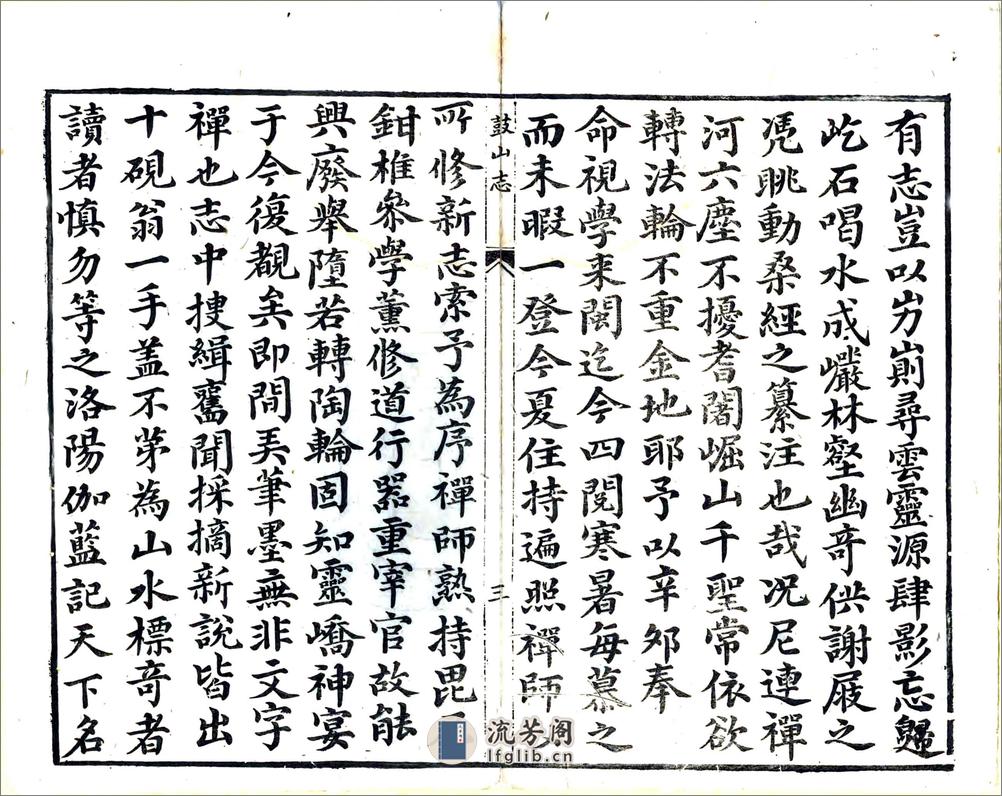 有志豈以屴崱尋雲靈源肆影忘歸
屹石喝水成巖林壑幽奇供謝屐之
凭眺動桑經之纂注也哉况尼連禪
河六塵不擾耆闍崛山千聖常依欲
轉法輪不重金地耶予以辛夘奉
命視學来閩迄今四閲寒暑每慕之
而未暇一登今夏住持遍照禪師
鼓山志
三
所修新志索予為序禪師熟持毘
鉗椎叅學薫修道行器重宰官故能
興廢舉墮若轉陶輪固知靈嶠神宴
于今復覩矣即間弄筆墨無非文字
禪也志中搜緝舊聞採摘新説皆出
十硯翁一手盖不苐為山水標奇者
讀者慎勿等之洛陽伽藍記天下名
流芳阁
lfglib.cn